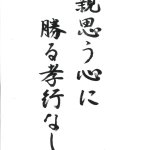 親思う心に
勝る孝行なし